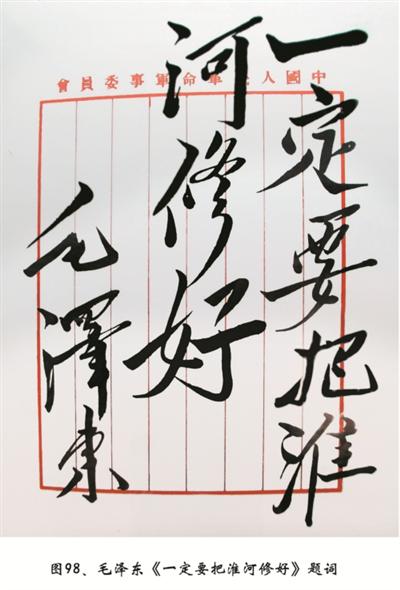 中國人民革命軍事委員會
一定要把淮
河修好
毛澤東
图98、毛泽东《一定要把淮河修好》题词